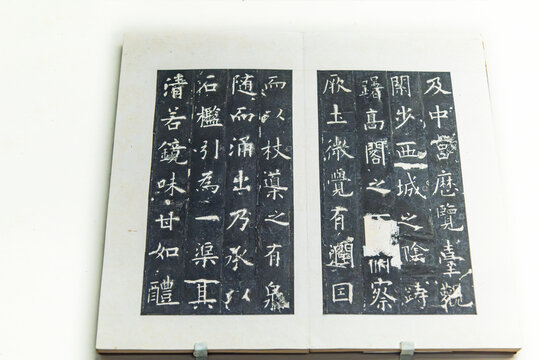 及中宮歷覽臺觀
閑步西城之陰躊
躇高閣之下俯察
厥土微覺有潤因
而以杖導之有泉
随而涌出乃承以
石檻引為一渠其
清若鏡味甘如醴